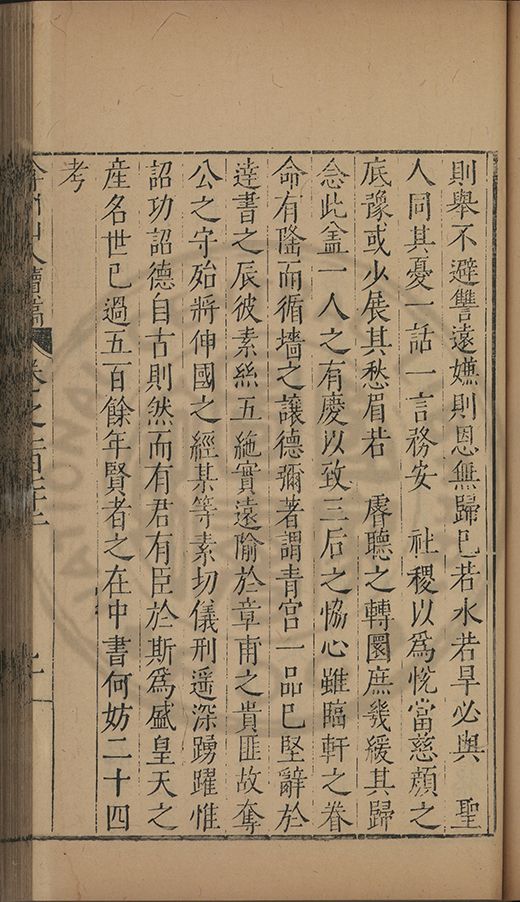 則舉不避讐遠嫌則恩無歸已若水若旱必與　聖
人同其憂一話一言務安　社稷以爲恱當慈顔之
底豫或少展其愁眉若　睿聽之轉圜庶幾緩其歸
念此盖一人之有慶以致三后之恊心雖臨軒之眷
命有隆而循墻之讓德彌著謂青宫一品已堅辭於
逹書之辰彼素絲五紽實遠隃於章甫之貴匪故奪
公之守殆將伸國之經某等素切儀刑遥深踴躍惟
詔功詔德自古則然而有君有臣於斯爲盛皇天之
産名世已過五百餘年賢者之在中書何妨二十四
考
山人續稿　卷之一百